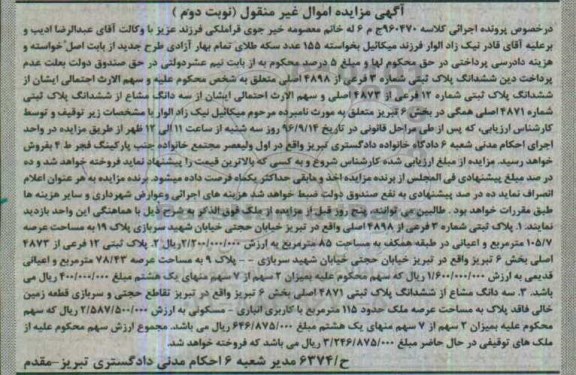 آگهی مزایده اموال غیر منقول (نوبت دوم)
درخصوص پرونده اجرائی کلاسه ۹۶۰۴۷۰ج م ۶ له خانم معصومه خیر جوی قراملکی فرزند عزیز با وکالت آقای عبدالرضا ادیب و
برعلیه آقای قادر نیک زاد الوار فرزند میکائیل بخواسته ۱۵۵ عدد سکه طلای تمام بهار آزادی طرح جدید از بابت اصل خواسته و
هزینه دادرسی پرداختی در حق محکوم لها و مبلغ ۵ درصد محکوم به از بابت نیم عشردولتی در حق صندوق دولت بعلت عدم
پرداخت دین ششدانگ پلاک ثبتی شماره ۳ فرعی از ۴۸۹۸ اصلی متعلق به شخص محکوم علیه و سهم الارث احتمالی ایشان از
ششدانگ پلاک ثبتی شماره ۱۲ فرعی از ۴۸۷۳ اصلی و سهم الارث احتمالی ایشان از سه دانگ مشاع از ششدانگ پلاک ثبتی
شماره ۴۸۷۱ اصلی همگی در بخش ۶ تبریز متعلق به مورث نامبرده مرحوم میکائیل نیک زاد الوار با مشخصات زیر توقیف و توسط
کارشناس ارزیابی، که پس از طی مراحل قانونی در تاریخ ۹۶/۹/۱۴ روز سه شنبه از ساعت ۱۱ الی ۱۲ ظهر از طریق مزایده در واحد
اجرای احکام مدنی شعبه ۶ دادگاه خانواده دادگستری تبریز واقع در اول ولیعصر مجتمع خانواده جنب پارکینگ فجر ط ۴ بفروش
خواهد رسید. مزایده از مبلغ ارزیابی شده کارشناس شروع و به کسی که بالاترین قیمت را پیشنهاد نماید فروخته خواهد شد و ده
در صد مبلغ پیشنهادی فی المجلس از برنده مزایده اخذ و مابقی حداکثر یکماه فرصت داده میشود. برنده مزایده به هر عنوان اعلام
انصراف نماید ده در صد پیشنهادی به نفع صندوق دولت ضبط خواهد شد هزینه های اجرائی وعوارض شهرداری و سایر هزینه ها
طبق مقررات خواهد بود . طالبین می توانند پنج روز قبل از مزایده از ملک فوق الذکر به شرح ذیل با هماهنگی این واحد بازدید
نمایند. ۱. پلاک ثبتی شماره ۳ فرعی از ۴۸۹۸ اصلی واقع در تبریز خیابان حجتی خیابان شهید سربازی پلاک ۱۹ به مساحت عرصه
۱۰۵/۷ مترمربع و اعیانی در طبقه همکف به مساحت ۸۵ مترمربع به ارزش ۲/۲۰۰/۰۰۰/۰۰۰ریال ۲. پلاک ثبتی ۱۲ فرعی از ۴۸۷۳
اصلی بخش ۶ تبریز واقع در تبریز خیابان حجتی خیابان شهید سربازی -- پلاک ۹ به مساحت عرصه ۷۸/۴۳ مترمربع و اعیانی
قدیمی به ارزش ۱/۶۰۰/۰۰۰/۰۰۰ ریال می باشد که سهم محکوم علیه بمیزان ۲ سهم از ۷ سهم منهای یک هشتم مبلغ ۴۰۰/۰۰۰/۰۰۰ ریال می
باشد. ۳. سه دانگ مشاع از ششدانگ پلاک ثبتی ۴۸۷۱ اصلی بخش ۶ تبریز واقع در تبریز تقاطع حجتی و سربازی قطعه زمین
خالی فاقد پلاک به مساحت عرصه ملک حدود ۱۱۵ مترمربع با کاربری انباری - مسکونی به ارزش ۲/۵۸۷/۵۰۰/۰۰۰ ریال که سهم
محکوم علیه بمیزان ۲ سهم از ۷ سهم منهای یک هشتم مبلغ ۶۴۶/۸۷۵/۰۰۰ ریال می باشد. مجموع ارزش سهم محکوم علیه از
ملک های توقیفی در حال حاضر مبلغ ۳/۲۴۶/۸۷۵/۰۰۰ ریال می باشد که فروخته خواهد شد.
ح/۶۳۷۴ مدیر شعبه ۶ احکام مدنی دادگستری تبریز-مقدم